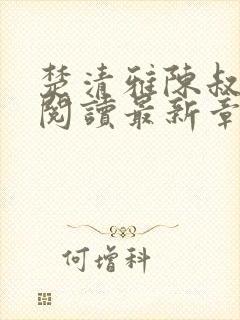 楚清雅陳叔
閱讀最新章
何增科